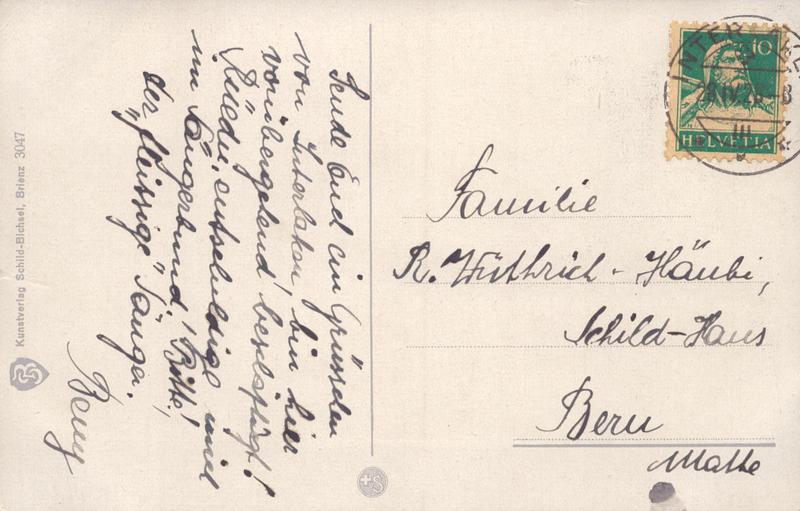 Sende Euch ein Grüsschen
von Interlaken, bin hier
vorübergehend beschäftigt!
Ruedi, entschuldige mich
im Sängerbund, Bitte!
der „fleissige" Sänger.
Beny
Kunstverlag Schild-Bichsel, Brienz 3047
10
HELVETIA
INTERLAKEN
Familie
R. Wüthrich-Häubi,
Schild-Haus
Bern
Matte